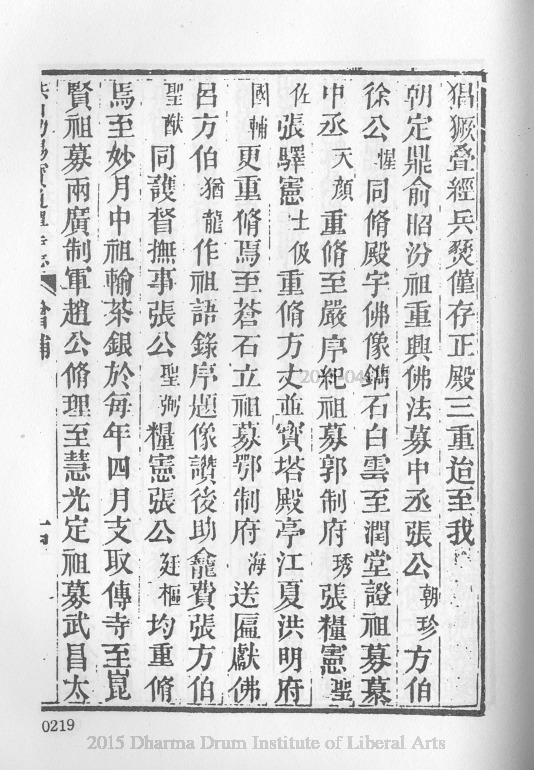 猖獗疊經兵燹僅存正殿三重迨至我
朝定鼎俞昭汾祖重興佛法募中丞張公朝珍方伯
徐公惺同脩殿宇佛像鐫石白雲至潤堂證祖募慕
中丞天顏重脩至嚴序紀祖募郭制府琇張糧憲聖
佐張驛憲士伋重脩方丈並寶塔殿亭江夏洪明府
國輔更重脩焉至蒼石立祖募鄂制府海送匾獻佛
呂方伯猶龍作祖語錄序題像讚後助龕費張方伯
聖猷同護督撫事張公聖弼糧憲張公廷樞均重脩
焉至妙月中祖輸茶銀於每年四月支取傳寺至崑
賢祖募兩廣制軍趙公脩理至慧光定祖募武昌太
增補
0219
2015 Dharma Drum Institute of Liberal Arts